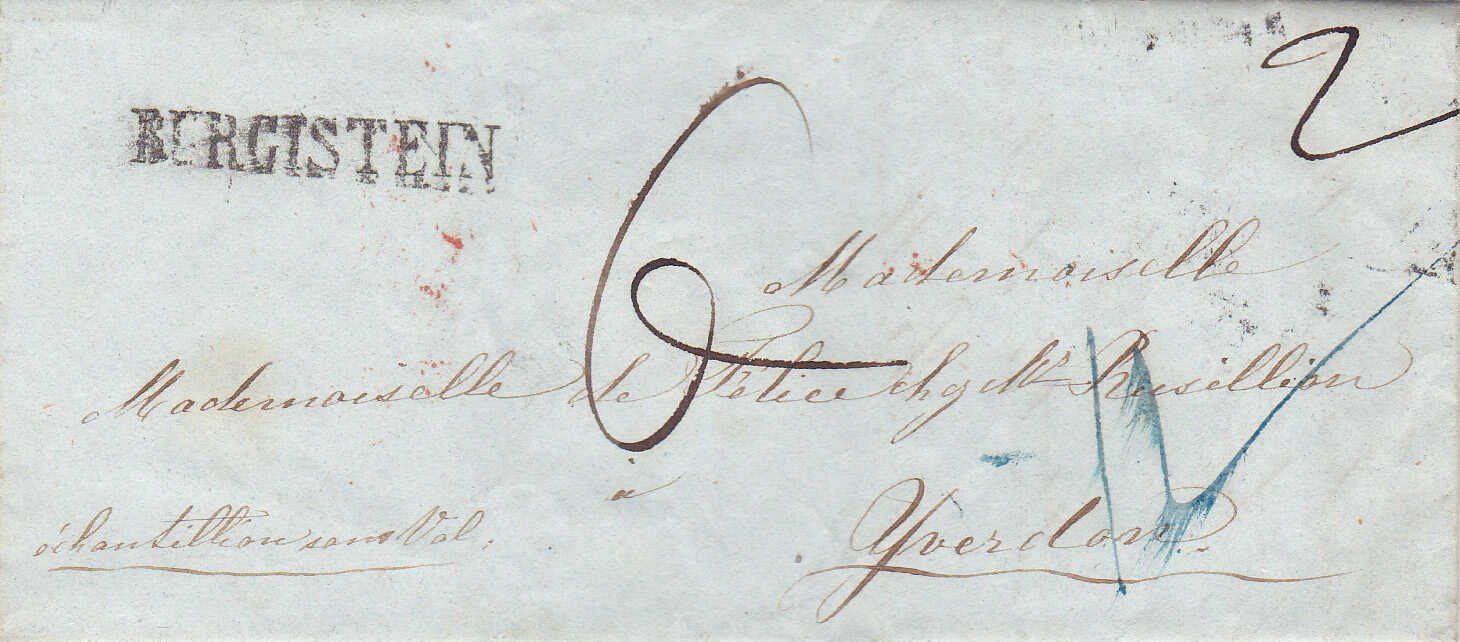 BURGISTEIN
2
6
Mademoiselle
Mademoiselle de Félice chez Mr Rusillion
à
Yverdon.
échantillion sans Val.